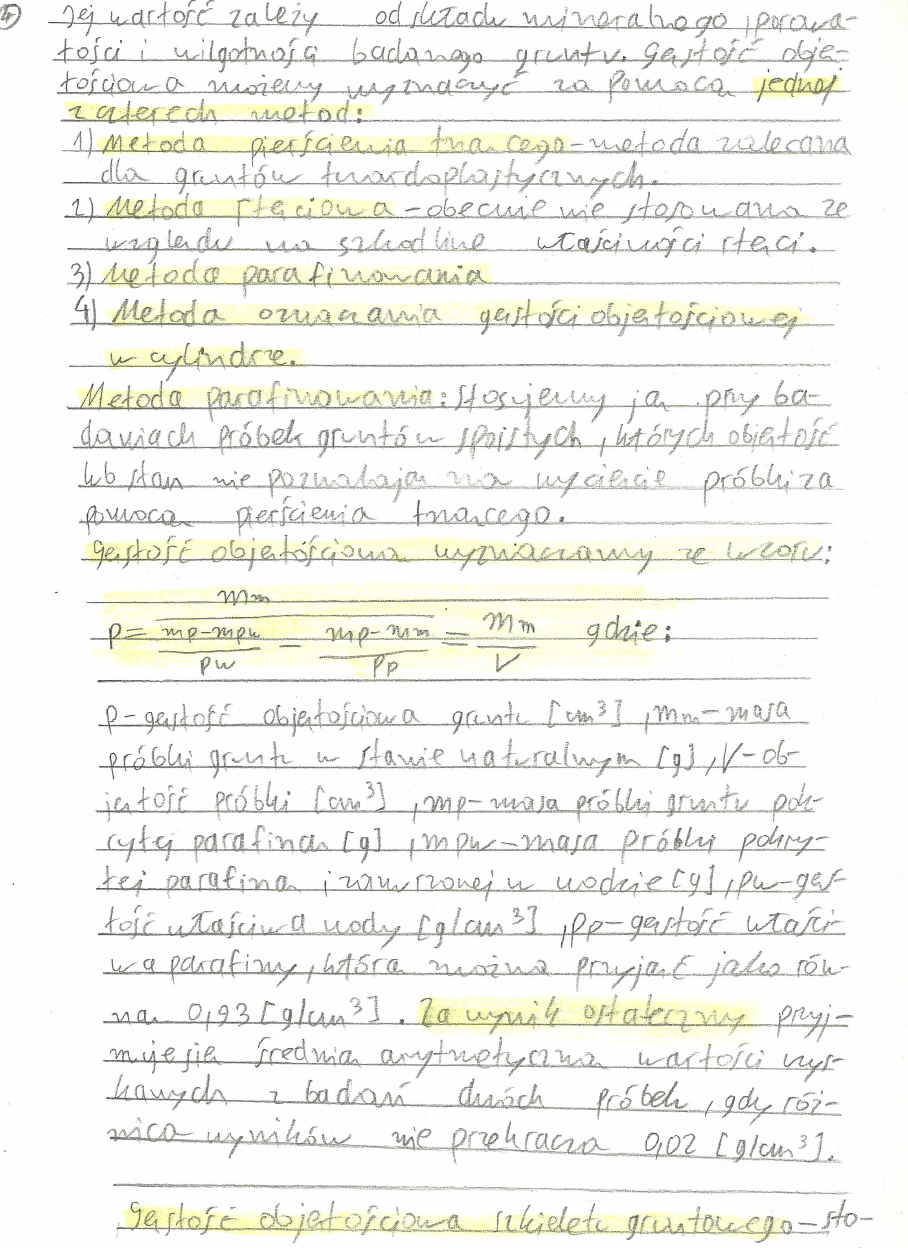 5) Jej wartość zależy od składu mineralnego, porowa-
tości i wilgotności badanego gruntu. Gęstość obję-
tościową możemy wyznaczyć za pomocą jednej
z czterech metod:
1) Metoda pierścienia tnącego - metoda zalecana
dla gruntów twardoplastycznych.
2) Metoda rtęciowa - obecnie nie stosowana ze
względu na szkodliwe właściwości rtęci.
3) Metoda parafinowania
4) Metoda oznaczania gęstości objętościowej
w cylindrze.
Metoda parafinowania: stosujemy ją przy ba-
daniach próbek gruntów spoistych, których objętość
lub stan nie pozwalają na wycięcie próbki za
pomocą pierścienia tnącego.
Gęstość objętościową wyznaczamy ze wzoru:
mm
p = mp-mpw - mp-mm = mm gdzie:
pw pp V
p - gęstość objętościowa gruntu [cm³], mm - masa
próbki gruntu w stanie naturalnym [g], V - ob-
jętość próbki [cm³], mp - masa próbki gruntu pok-
rytej parafiną [g], mpw - masa próbki pokry-
tej parafiną i zanurzonej w wodzie [g], pw - gęs-
tość właściwa wody [g/cm³], pp - gęstość właści-
wa parafiny, którą można przyjąć jako rów-
ną 0,93 [g/cm³]. Za wynik ostateczny przyj-
muje się średnią arytmetyczną wartości uzys-
kanych z badań dwóch próbek, gdy róż-
nica wyników nie przekracza 0,02 [g/cm³].
Gęstość objętościowa szkieletu gruntowego - sto-